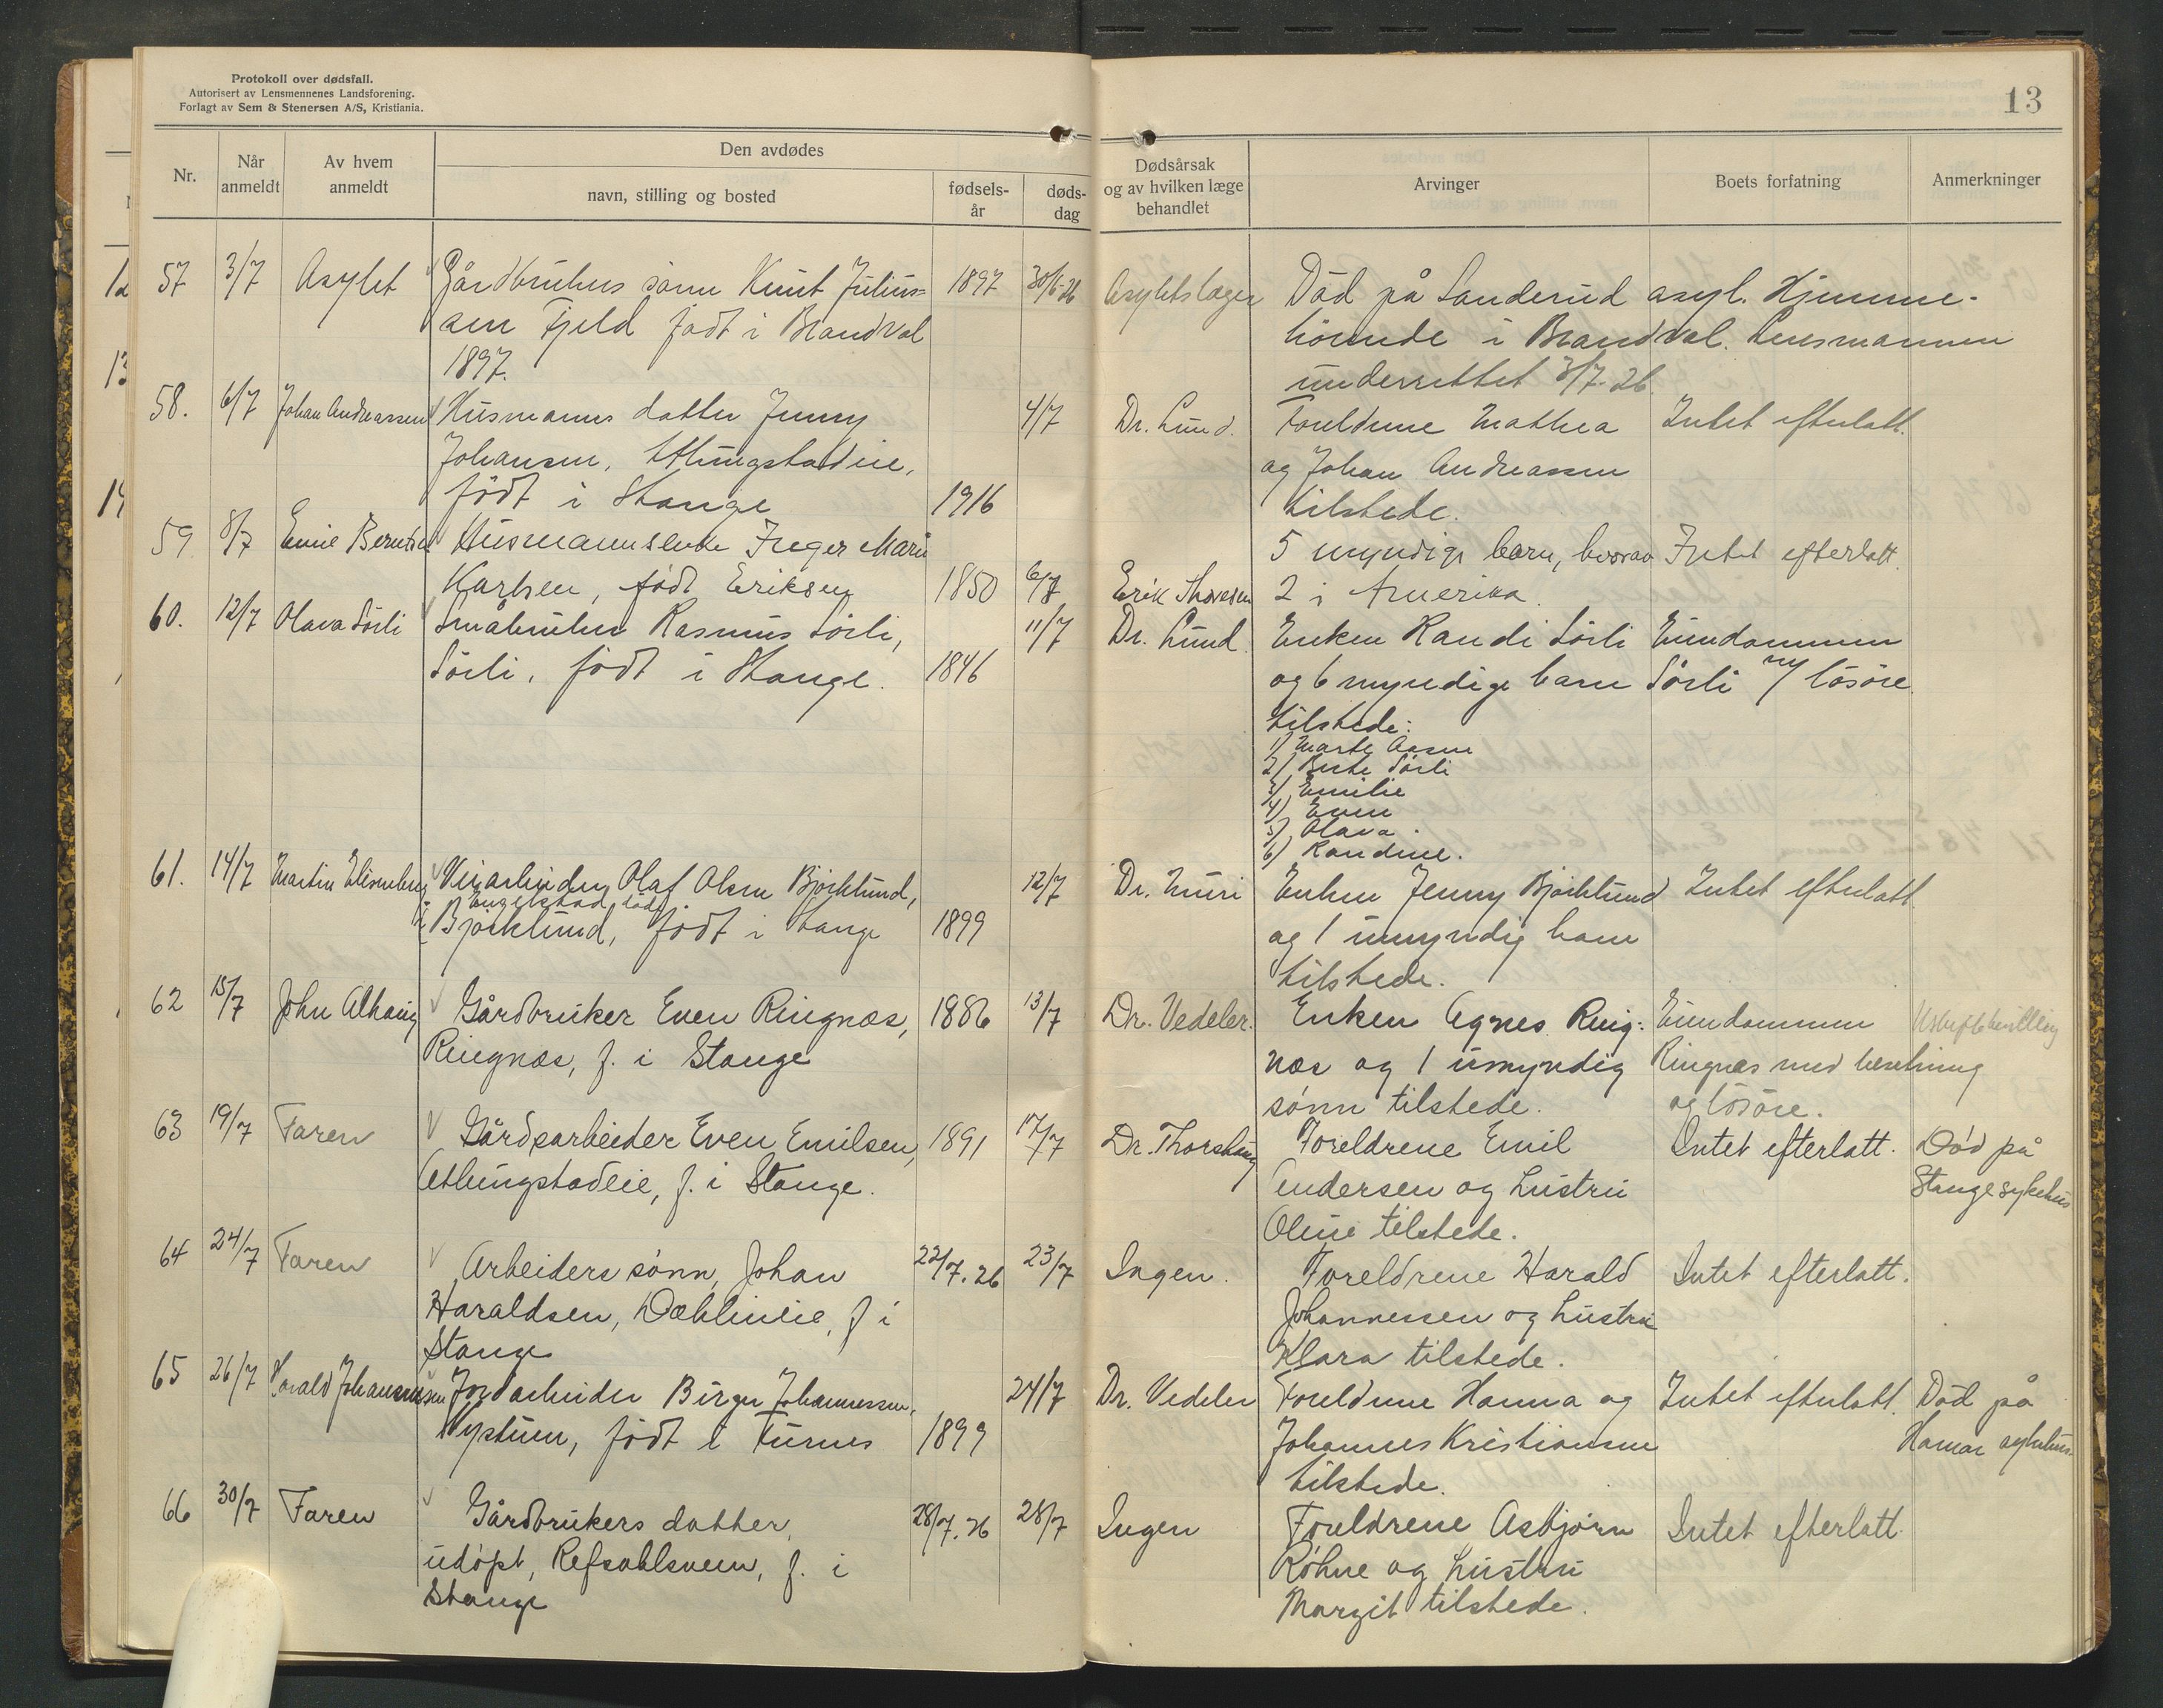 Protokoll over dødsfall.
Autorisert av Lensmennenes Landsforening.
Forlagt av Sem & Stenersen A/S, Kristiania.
13
Nr.
Når anmeldt
Av hvem anmeldt
Den avdødes
navn, stilling og bosted
fødsels-år
døds-dag
Dødsårsak og av hvilken læge behandlet
Arvinger
Boets forfatning
Anmerkninger
57 3/7 Asylet Gårdbrukers sønn Knut Julius- 1897 30/6-26 Asylets læger Død på Sanderud asyl. Hjemme-
sen Fjeld født i Brandval hörende i Brandval. Lensmannen
1897. underrettet 3/7-26
58. 6/7 Johan Andreassen Husmanns datter Jenny 4/7 Dr. Lund. Foreldrene Mathea Intet efterlatt.
Johansen, Atlungstadeie, og Johan Andreassen
født i Stange 1916 tilstede.
59 8/7 Emil Berntsen Husmannsenke Inger Marie 5 myndige barn, hvorav Intet efterlatt.
Karlsen, født Eriksen 1850 6/7 Erik Thoresen 2 i Amerika.
60. 12/7 Olava Sörli Småbruker Rasmus Sörli, 11/7 Dr. Lund. Enken Randi Sörli Eiendommen
Sörli, født i Stange. 1846 og 6 myndige barn Sörli m/ lösöre.
tilstede:
1) Marte Aasen
2) Berte Sörli
3) Emilie
4) Even
5) Olava
6) Randine.
61. 14/7 Martin Veiarbeider Olaf Olsen Björklund, 12/7 Dr. Muri Enken Jenny Björklund Intet efterlatt.
Engelstad
Björklund, født i Stange 1899 og 1 umyndig barn
tilstede.
62 15/7 John Alhaug Gårdbruker Even Ringnæs, 1886 13/7 Dr. Vedeler. Enken Agnes Ring- Eiendommen Uskiftebevilling
Ringnæs, f. i Stange næs og 1 umyndig Ringnæs med besetning
sønn tilstede. og lösöre.
63 19/7 Faren Gårdsarbeider Even Emilsen, 1891 17/7 Dr. Thorshaug Foreldrene Emil Intet efterlatt. Død på
Atlungstadeie, f. i Stange. Andersen og hustru Stange sykehus
Oline tilstede.
64 24/7 Faren Arbeiders sønn, Johan 22/7.26 23/7 Ingen. Foreldrene Harald Intet efterlatt.
Haraldsen, Dæhlineie, f i Johannessen og hustru
Stange Klara tilstede.
65 26/7 Harald Johannessen Jordarbeider Birger Johannessen, 24/7 Dr. Vedeler Foreldrene Hanna og Intet efterlatt. Død på
Nystuen, født i Furnes 1899 Johannes Kristiansen Hamar sykehus.
tilstede.
66 30/7 Faren Gårdbrukers datter, 28/7.26 28/7 Ingen Foreldrene Asbjørn Intet efterlatt.
udøpt, Refsahlsveen, f. i Røhne og hustru
Stange Margit tilstede.